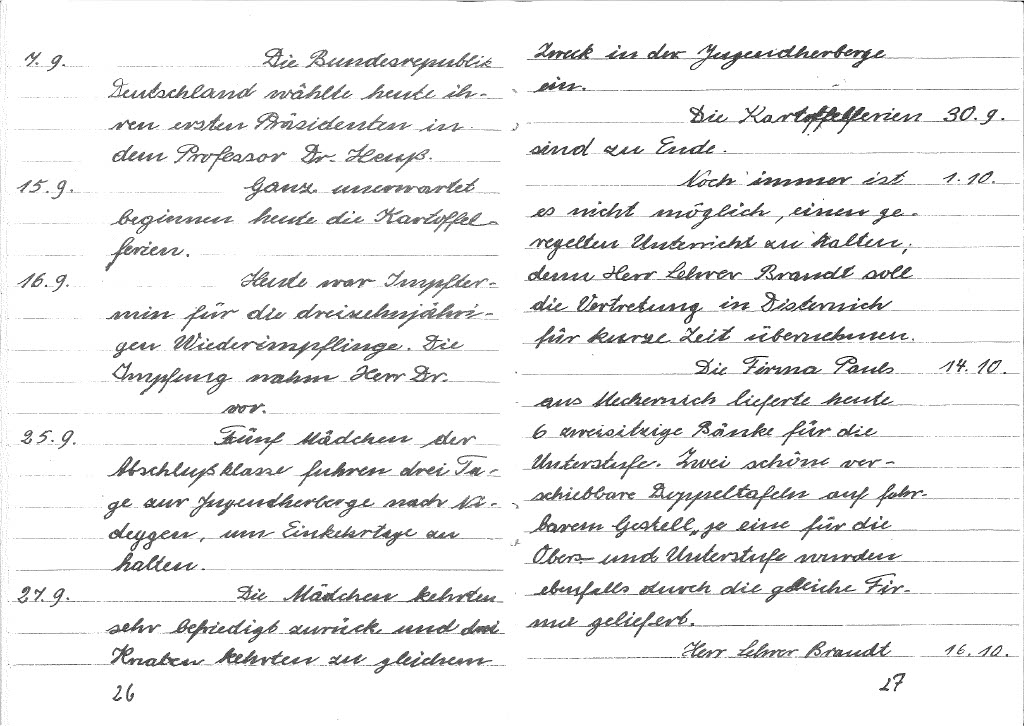 7. 9. Die Bundesrepublik
Deutschland wählte heute ih-
ren ersten Präsidenten in
dem Professor Dr. Heuß.
15. 9. Ganz unerwartet
beginnen heute die Kartoffel-
ferien.
16. 9. Heute war Impfter-
min für die dreizehnjähri-
gen Wiederimpflinge. Die
Impfung nahm Herr Dr.
vor.
25. 9. Fünf Mädchen der
Abschlußklasse fuhren drei Ta-
ge zur Jugendherberge nach Ni-
deggen, um Einkehrtage zu
halten.
27. 9. Die Mädchen kehrten
sehr befriedigt zurück und drei
Knaben kehrten zu gleichem
26
Zweck in der Jugendherberge
ein.
Die Kartoffelferien 30. 9.
sind zu Ende.
Noch immer ist 1. 10.
es nicht möglich, einen ge-
regelten Unterricht zu halten,
denn Herr Lehrer Brandt soll
die Vertretung in Disternich
für kurze Zeit übernehmen.
Die Firma Pauls 14. 10.
aus Mechernich lieferte heute
6 zweisitzige Bänke für die
Unterstufe. Zwei schöne ver-
schiebbare Doppeltafeln auf fahr-
barem Gestell, je eine für die
Ober- und Unterstufe wurden
ebenfalls durch die gleiche Fir-
ma geliefert.
Herr Lehrer Brandt 16. 10.
27